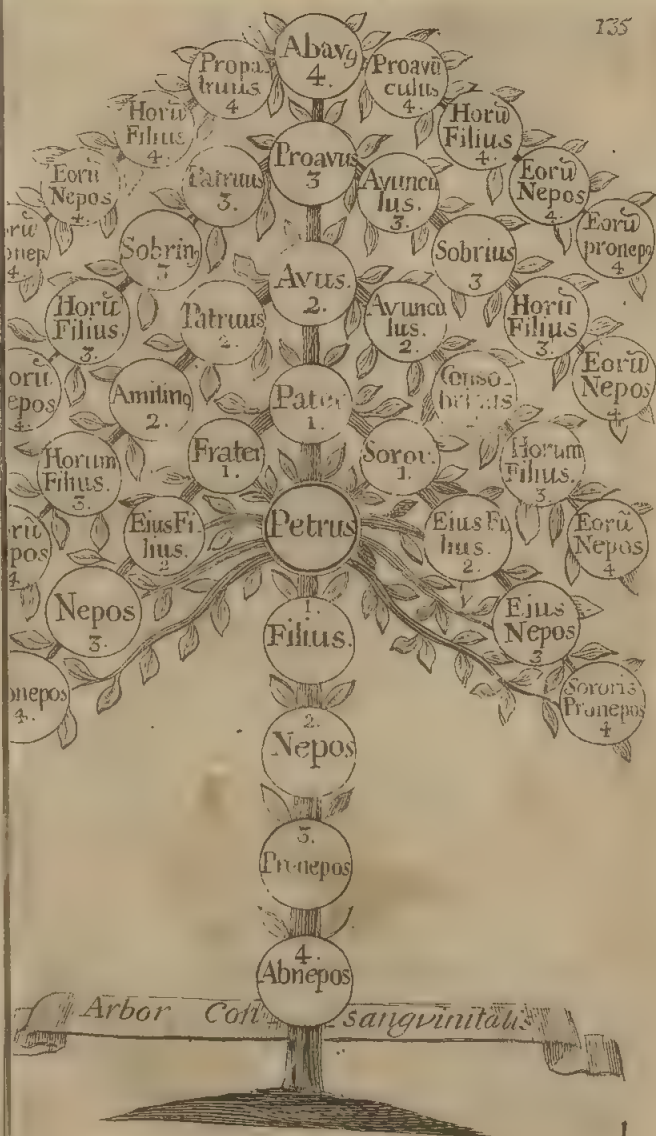 135
Abavꝯ
4.
Propa
truus
4
Proavū
culus
4.
Horū
Filius
4.
Horū
Filius
4.
Proavus
3
Eorū
Nepos
4.
Patruus
3.
Avuncu
lus.
3.
Eorū
Nepos
4
rū
onep
4.
Sobrinꝯ
3
Sobrius
3
Eorū
pronepo
4
Avus.
2.
Horū
Filius.
3.
Patruus
2.
Avuncu
lus.
2.
Horū
Filius
3.
orū
epos
4.
Amitinꝯ
2.
Pater
1.
Conso-
brinus
Eorū
Nepos
4
Frater
1.
Soror.
1.
Horum
Filius.
3.
Horum
Filius.
3
rū
pos
4
Eius Fi
lius.
2
Petrus
Eius Fi
lius.
2.
Eorū
Nepos
4
Nepos
3.
1.
Filius.
Ejus
Nepos
3
onepos
4.
Sororis
Pronepos
4
2.
Nepos
3.
Pronepos
4.
Abnepos
Arbor Con sangvinitatis